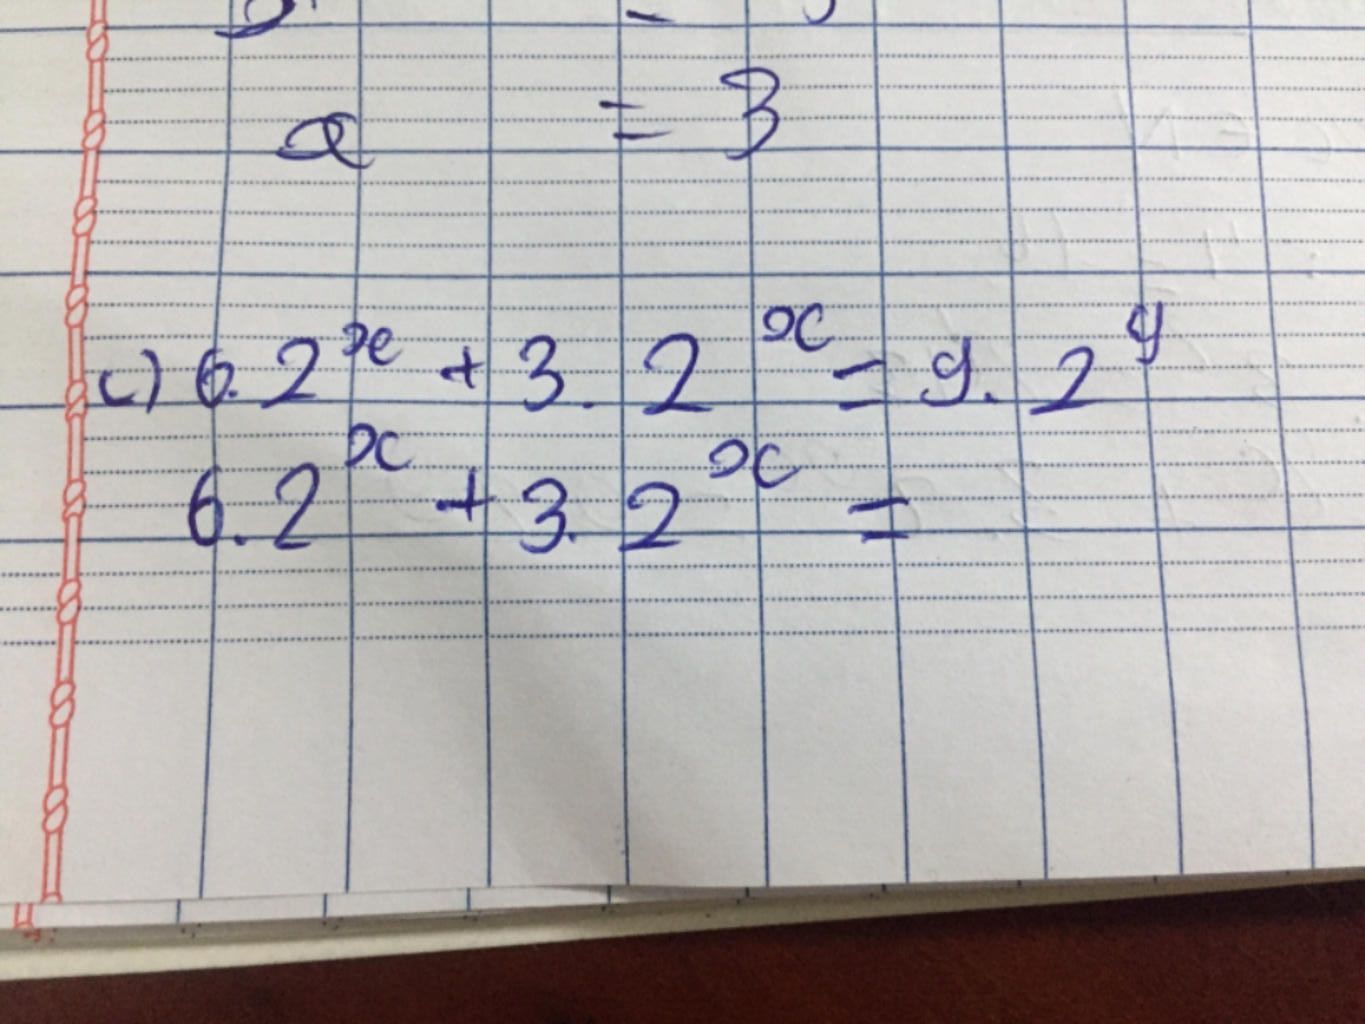 x = 3
c) 6.2^x + 3.2^x = 9.2^9
6.2^x + 3.2^x =